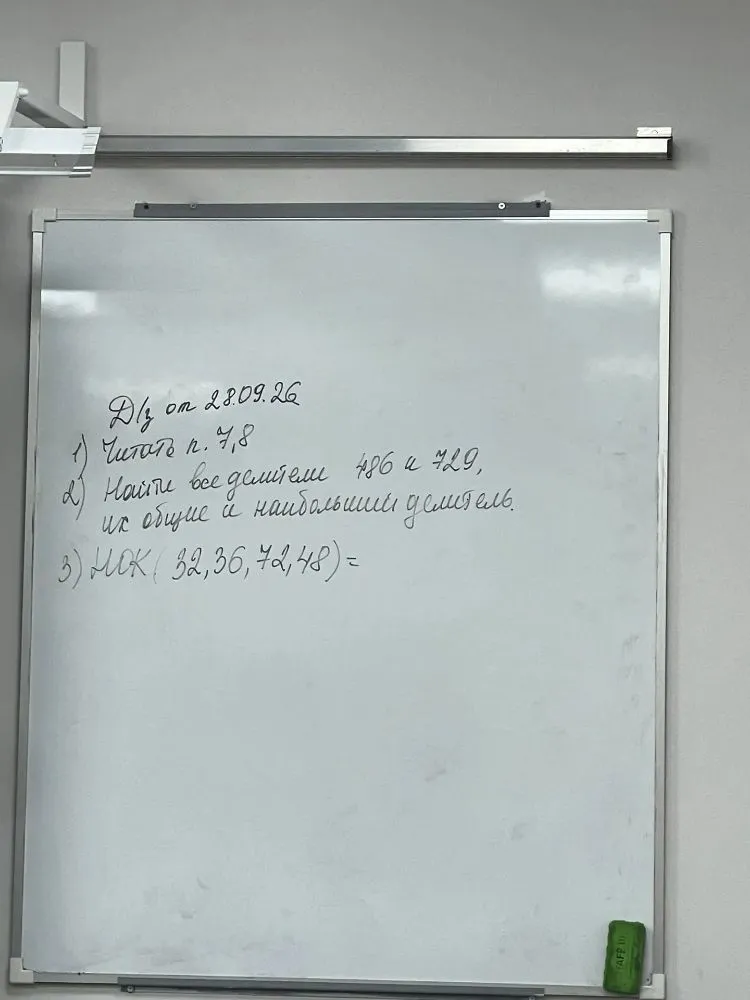 Д/з от 28.09.26
1) Читать п. 7,8
2) Найти все делители 486 и 729,
их общие и наибольший делитель.
3) НОК (32,36,72,48)=